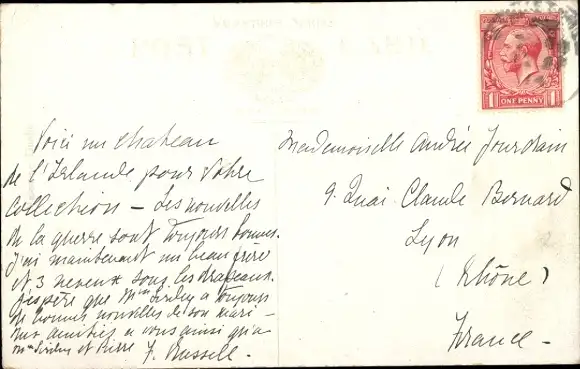 Voici un chateau
de l'Irlande pour votre
collection – Les nouvelles
de la guerre sont toujours bonnes.
J'ai maintenant un beau frère
et 3 neveux sous les drapeaux.
J'espère que Mme a toujours
de bonnes nouvelles de son mari –
mes amitiés a vous ainsi qu'a
Mme et Pierre F. Russell.
Mademoiselle Andrée Jourdain
9. Quai Claude Bernard
Lyon
(Rhône)
France –
1 ONE PENNY 1